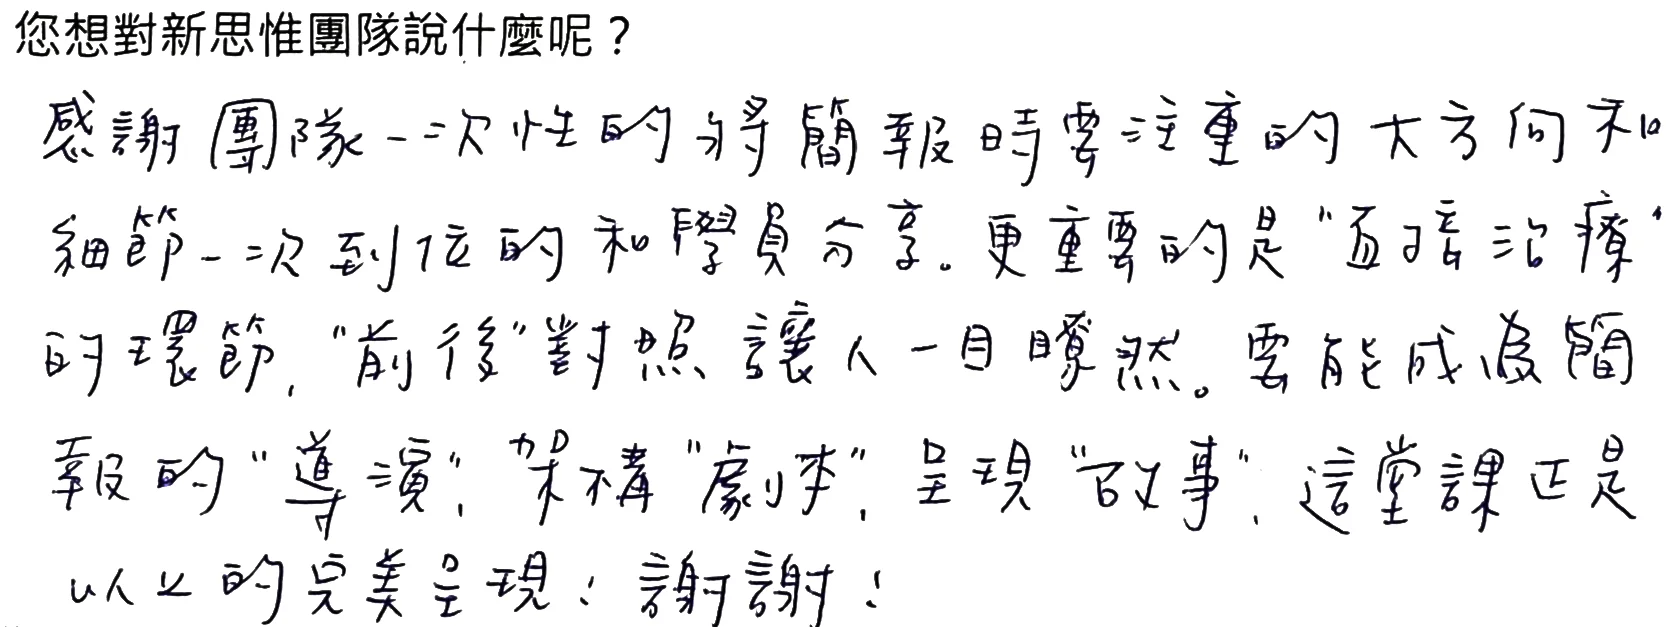 您想對新思惟團隊說什麼呢？
感謝團隊一次性的將簡報時要注重的大方向和
細節一次到位的和學員分享。更重要的是"直接治療"
的環節,"前後"對照讓人一目瞭然。要能成為簡
報的"導演",架構"劇本",呈現"故事",這堂課正是
以上的完美呈現!謝謝!